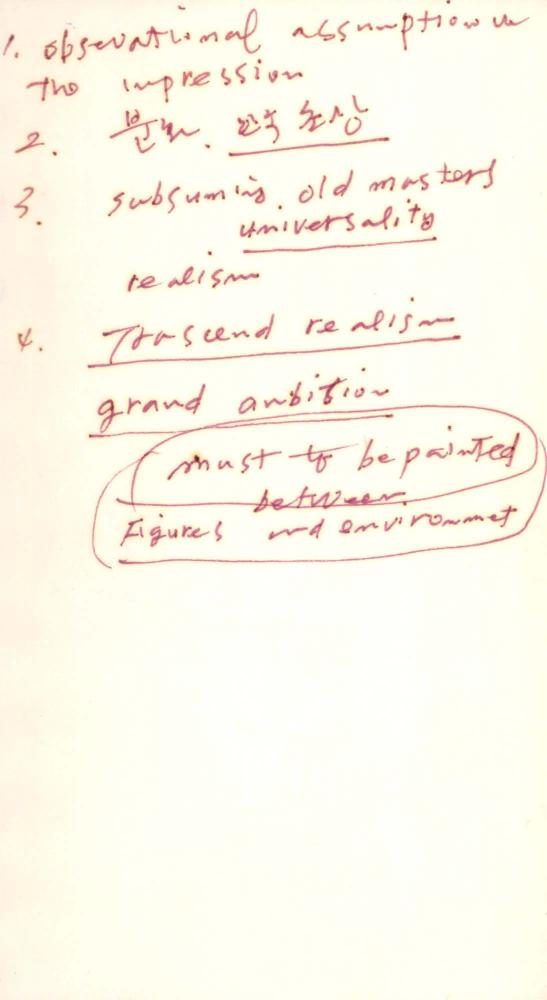 1. observational assumption in
the impression
2. 한국 초상
3. subsuming old masters
universality
realism
4. Trascend realism
grand ambition
must to be painted
between
Figures and environmet